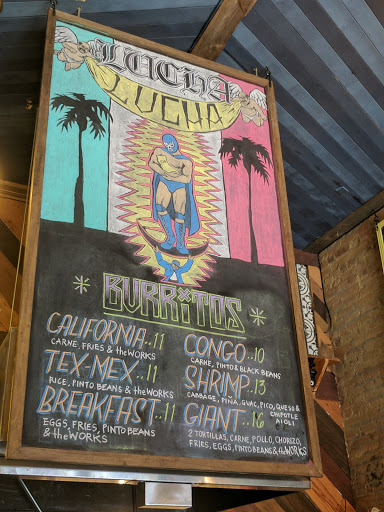 LUCHA
LUCHA
BURRITOS
CALIFORNIA..11
CARNE, FRIES & theWORKS
TEX-MEX..11
RICE, PINTO BEANS & theWORKS
BREAKFAST..11
EGGS, FRIES, PINTO BEANS
& theWORKS
CONGO..10
CARNE, PINTO & BLACK BEANS
SHRIMP..13
CABBAGE, PIÑA, GUAC, PICO, QUESO &
CHIPOTLE
AIOLI
GIANT..16
2 TORTILLAS, CARNE, POLLO, CHORIZO,
FRIES, EGGS, PINTO BEANS & theWORKS